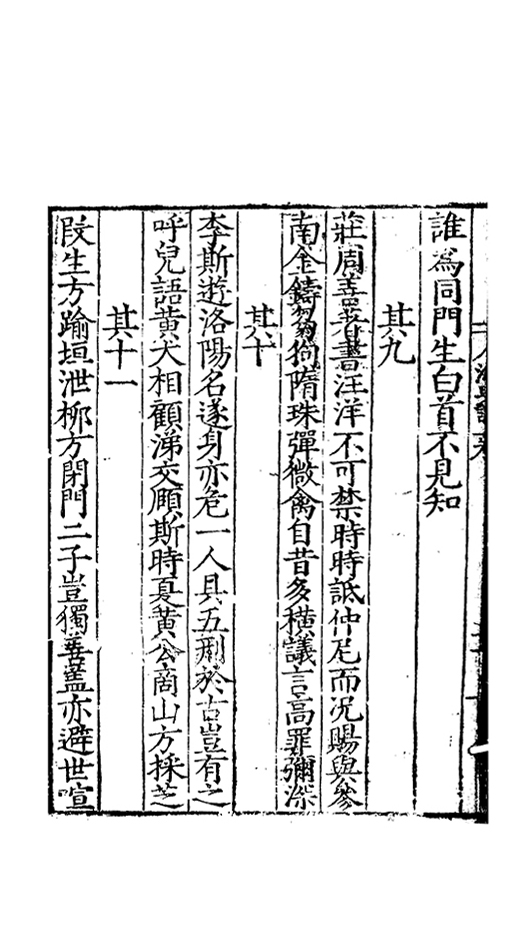 誰為同門生白首不見知
其九
莊周善著書汪洋不可禁時時詆仲尼而况賜與參
南金鑄芻狗隋珠彈微禽自昔多橫議言高罪彌深
其十
李斯遊洛陽名遂身亦危一人具五刑於古豈有之
呼兒語黄犬相顧涕交頤斯時夏黄公商山方採芝
其十一
段生方踰垣泄柳方閉門二子豈獨善蓋亦避世喧